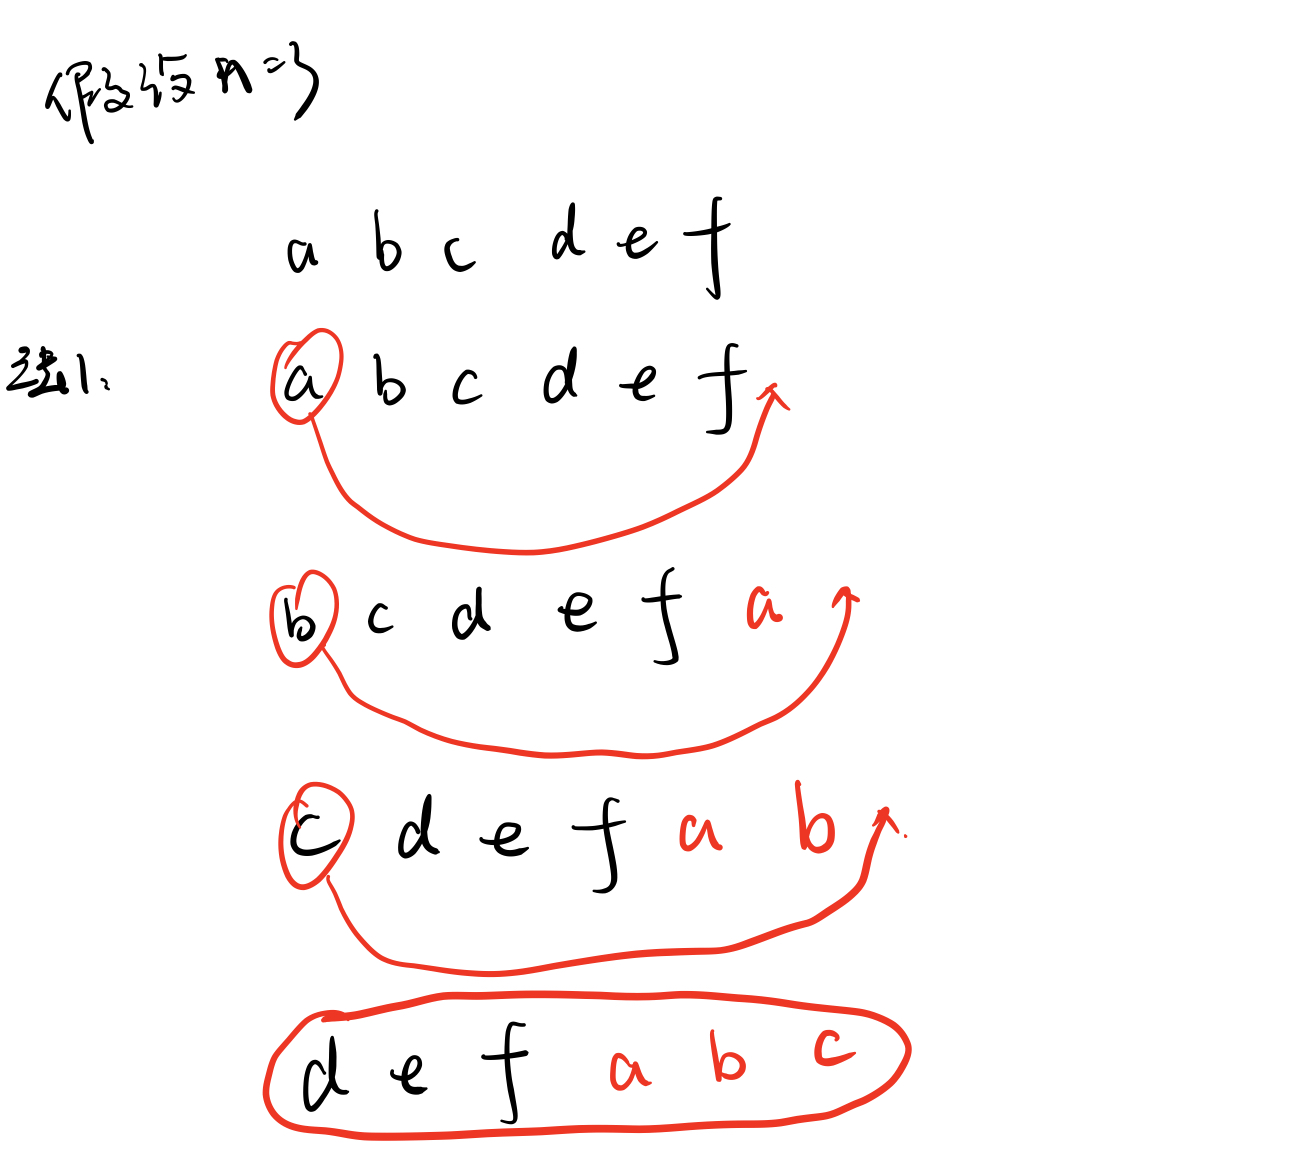 假设n=3
a b c d e f
法1、
a b c d e f
b c d e f a
c d e f a b
d e f a b c